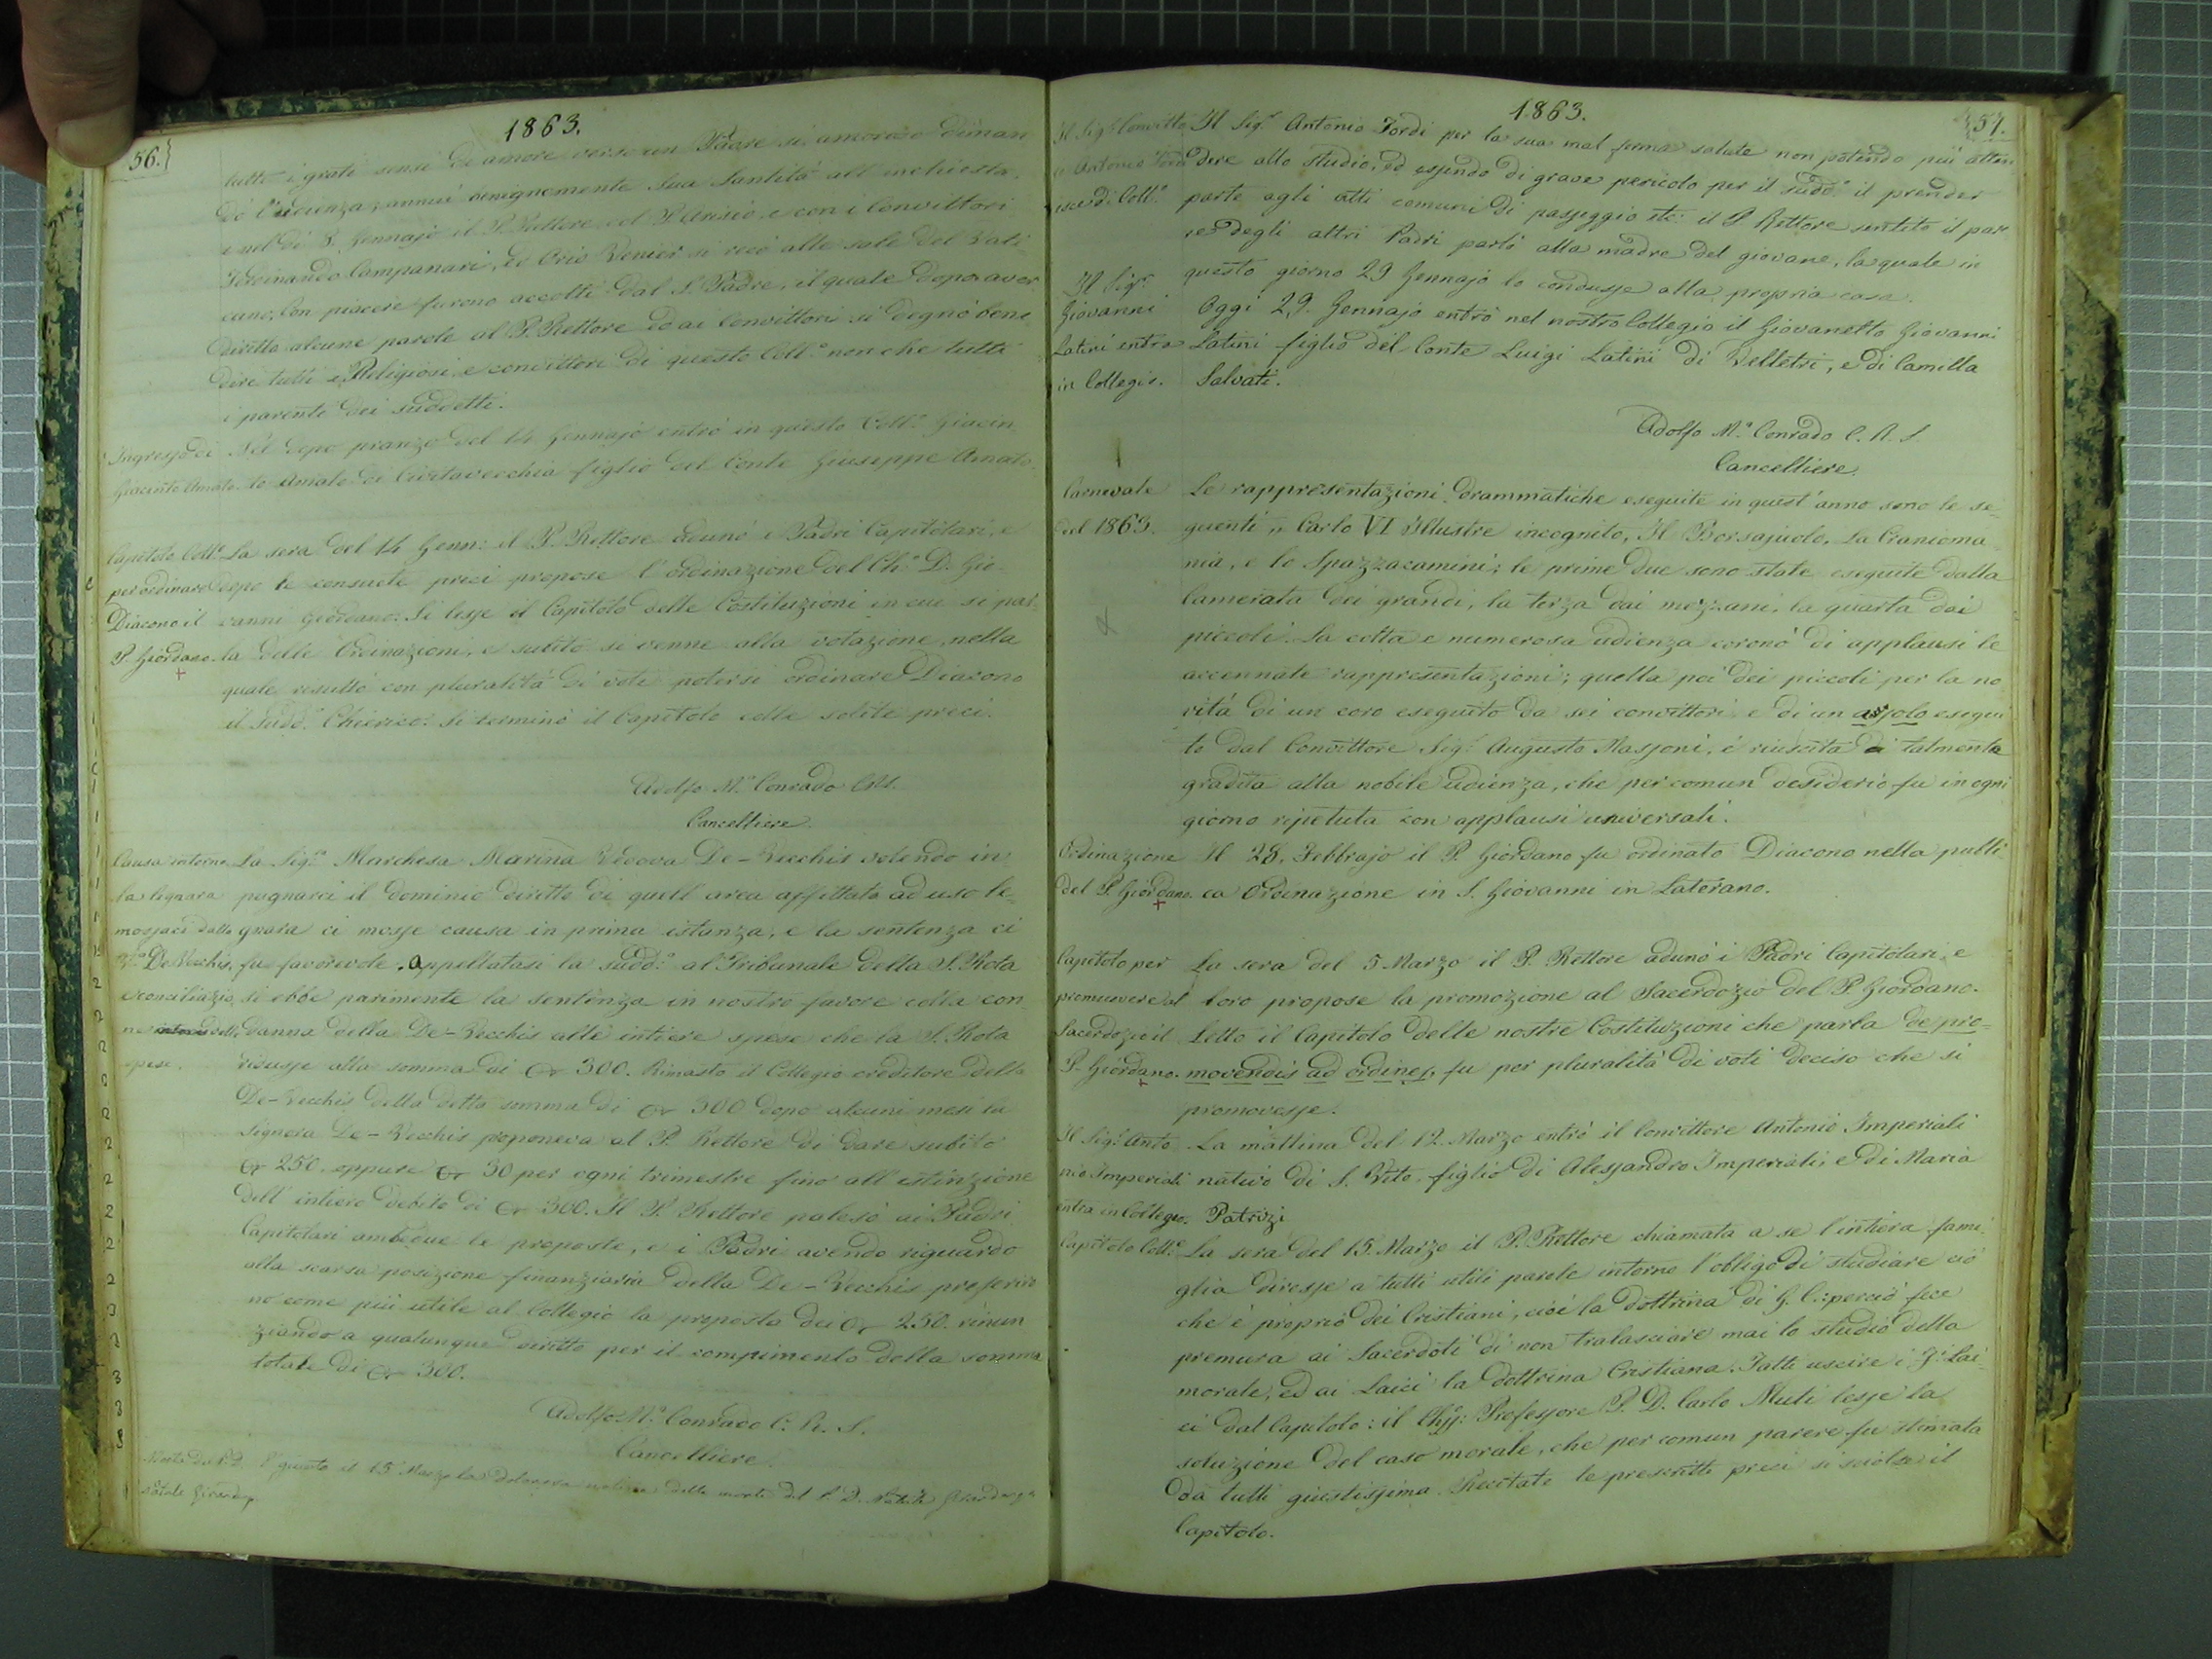 1863.
56.
tutti i grati sensi di amore verso un Padre sì amoroso diman
dò l'udienza; annuì benignamente Sua Santità all'inchiesta,
e nel dì 3. Gennajo il P. Rettore col P. e con i Convittori
Ferdinando Campanari, ed Orio Venier si recò alle sale del Vati
cano. Con piacere furono accolti dal S. Padre, il quale dopo aver
diretto alcune parole al P. Rettore ed ai Convittori si degnò bene
dire tutti i Religiosi e convittori di questo Coll.º non che tutti
i parenti dei suddetti.
Ingresso di
Giacinto Amato.
Nel dopo pranzo del 14 Gennajo entrò in questo Coll.º Giacin
to Amato di Civitavecchia figlio del Conte Giuseppe Amato.
Capitolo Coll.º
per ordinare
Diacono il
P. Giordano.
La sera del 14 Genn: il P. Rettore adunò i Padri Capitolari, e
dopo le consuete preci propose l'ordinazione del Ch.º D. Gio
vanni Giordano. Si lesse il Capitolo delle Costituzioni in cui si par
la delle Ordinazioni, e subito si venne alla votazione, nella
quale resultò con pluralità di voti potersi ordinare Diacono
il sudd.º Chierico: Si terminò il Capitolo colle solite preci.
Adolfo M.ª Conrado CRS.
Cancelliere.
Causa intorno
la legnara
mossaci dalla
De Vecchis,
e conciliazio
ne delle
spese.
La Sig.ª Marchesa Marina Vedova De-Vecchis volendo im
pugnarci il dominio diretto di quell'area affittata ad uso le=
gnara ci mosse causa in prima istanza, e la sentenza ci
fu favorevole. Appellatasi la sudd.ª al Tribunale della S. Rota
si ebbe parimente la sentenza in nostro favore colla con
danna della De-Vecchis alle intiere spese che la S. Rota
ridusse alla somma di 300. Rimasto il Collegio creditore della
De-Vecchis della detta somma di 300 dopo alcuni mesi la
Signora De-Vecchis proponeva al P. Rettore di dare subito
250. oppure 30 per ogni trimestre fino all'estinzione
dell'intiero debito di 300. Il P. Rettore palesò ai Padri
Capitolari ambedue le proposte, e i Padri avendo riguardo
alla scarsa posizione finanziaria della De-Vecchis preferiro
no come più utile al Collegio la proposta dei 250. rinun
ziando a qualunque diritto per il compimento della somma
totale di 300.
Adolfo M.ª Conrado C. R. S.
Cancelliere.
Morte del P. D.
Natale
È giunta il 15 Marzo la dolorosa notizia della morte del P. D. Natale
1863.
57.
Il Sig.r Convitto
re Antonio Tordi
esce di Coll.º
Il Sig.r Antonio Tordi per la sua mal ferma salute non potendo più atten
dere allo studio, ed essendo di grave pericolo per il sudd.º il prender
parte agli atti comuni di passeggio etc: il P. Rettore sentito il pare
re degli altri Padri parlò alla madre del giovane, la quale in
questo giorno 29 Gennajo lo condusse alla propria casa.
Il Sig.r
Giovanni
Latini entra
in Collegio.
Oggi 29. Gennajo entrò nel nostro Collegio il Giovanetto Giovanni
Latini figlio del Conte Luigi Latini di Velletri, e di Camilla
Salvati.
Adolfo M.ª Conrado C. R. S.
Cancelliere.
Carnevale
del 1863.
Le rappresentazioni drammatiche eseguite in quest'anno sono le se=
guenti „ Carlo VI illustre incognito, Il Borsajuolo, La Cranioma
nia, e lo Spazzacamini; le prime due sono state eseguite dalla
Camerata dei grandi, la terza dai mezzani, la quarta dai
piccoli. La colta e numerosa udienza coronò di applausi le
accennate rappresentazioni; quella poi dei piccoli per la no
vità di un coro eseguito da sei convittori e di un assolo esegui
to dal Convittore Sig.r Augusto Massoni, è riuscita talmente
gradita alla nobile udienza, che per comun desiderio fu in ogni
giorno ripetuta con applausi universali.
Ordinazione
del P. Giordano.
Il 28. Febbrajo il P. Giordano fu ordinato Diacono nella pubbli
ca Ordinazione in S. Giovanni in Laterano.
Capitolo per
promuovere al
Sacerdozio il
P. Giordano.
La sera del 5 Marzo il P. Rettore adunò i Padri Capitolari, e
loro propose la promozione al Sacerdozio del P. Giordano.
Letto il Capitolo delle nostre Costituzioni che parla de pro=
movendis ad ordines, fu per pluralità di voti deciso che si
promovesse.
Il Sig.r Anto
nio Imperiali
entra in Collegio.
La mattina del 12. Marzo entrò il Convittore Antonio Imperiali
nativo di S. Vito, figlio di Alessandro Imperiali, e di Maria
Patrizi
Capitolo Coll.º
La sera del 15. Marzo il P. Rettore chiamata a se l'intiera fami
glia diresse a tutti utili parole intorno l'obbligo di studiare ciò
che è proprio dei Cristiani, cioè la dottrina di G. C.: perciò fece
premura ai Sacerdoti di non tralasciare mai lo studio della
morale, ed ai Laici la dottrina Cristiana. Fatti uscire i F.i Lai
ci dal Capitolo: il Professore P. D. Carlo Muti lesse la
soluzione del caso morale, che per comun parere fu stimata
da tutti giustissima. Recitate le prescritte preci si sciolse il
Capitolo.